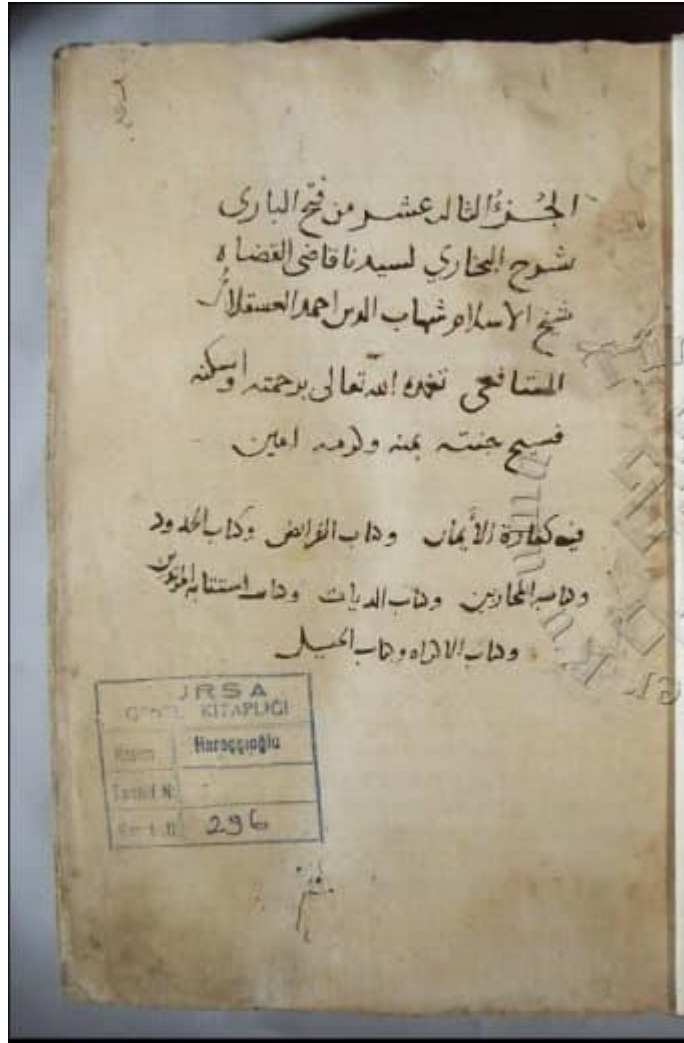 الجزء الثالث عشر من فتح الباري
بشرح البخاري لسيدنا قاضي القضاه
شيخ الاسلام شهاب الدين احمد العسقلاني
الشافعي تغمده الله تعالى برحمته واسكنه
فسيح جنته بمنه وكرمه امين
فيه كفارة الأيمان وكتاب الفرائض وكتاب الحدود
وكتاب المحاربين وكتاب الديات وكتاب استتابة المرتدين
وكتاب الاكراه وكتاب الحيل
URSA
GENEL KİTAPLIĞI
Kısım Haraççıoğlu
Tasnif N
Kayıt N 296